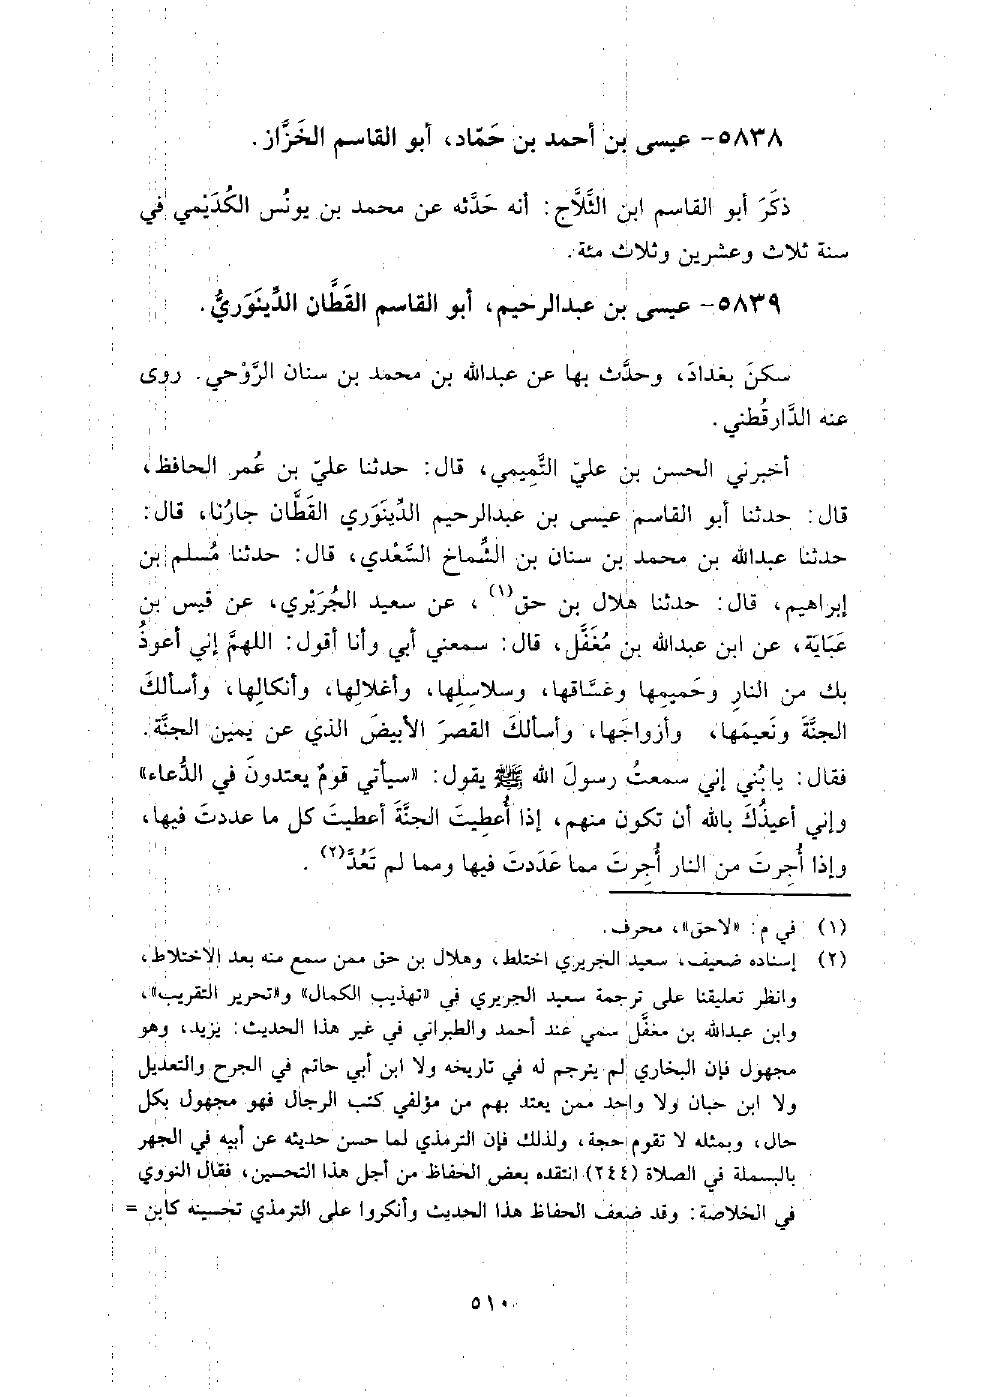 ٥٨٣٨- عيسى بن أحمد بن حَمّاد، أبو القاسم الخَزَّاز.
ذكَرَ أبو القاسم ابن الثَّلَّاج: أنه حَدَّثه عن محمد بن يونُس الكُدَيْمي في
سنة ثلاث وعشرين وثلاث مئة.
٥٨٣٩- عيسى بن عبدالرحيم، أبو القاسم القَطَّان الدِّينَوَريُّ.
سكنَ بغدادَ، وحدَّث بها عن عبدالله بن محمد بن سنان الرَّوْحي. روى
عنه الدَّارقُطني.
أخبرني الحسن بن عليّ التَّمِيمي، قال: حدثنا عليّ بن عُمر الحافظ،
قال: حدثنا أبو القاسم عيسى بن عبدالرحيم الدِّينَوَري القَطَّان جارُنا، قال:
حدثنا عبدالله بن محمد بن سنان بن الشَّماخ السَّعْدي، قال: حدثنا مُسلم بن
إبراهيم، قال: حدثنا هلال بن حق(١)، عن سعيد الجُرَيْري، عن قيس بن
عَبَاية، عن ابن عبدالله بن مُغَفَّل، قال: سمعني أبي وأنا أقول: اللهمَّ إني أعوذُ
بك من النارِ وحَميمِها وغسَّاقها، وسلاسِلِها، وأغلالِها، وأنكالِها، وأسألكَ
الجنَّةَ ونَعيمَها، وأزواجَها، وأسألكَ القصرَ الأبيضَ الذي عن يمين الجنَّة.
فقال: يا بُني إني سمعتُ رسولَ الله ﷺ يقول: «سيأتي قومٌ يعتدونَ في الدُّعاء»
وإني أعيذُكَ بالله أن تكون منهم، إذا أُعطِيتَ الجنَّةَ أعطيتَ كل ما عددتَ فيها،
وإذا أُجِرتَ من النار أُجِرتَ مما عَدَدتَ فيها ومما لم تَعُدَّ(٢).
(١) في م: «لاحق»، محرف.
(٢) إسناده ضعيف، سعيد الجريري اختلط، وهلال بن حق ممن سمع منه بعد الاختلاط،
وانظر تعليقنا على ترجمة سعيد الجريري في «تهذيب الكمال» و«تحرير التقريب»،
وابن عبدالله بن مغفَّل سمي عند أحمد والطبراني في غير هذا الحديث: يزيد، وهو
مجهول فإن البخاري لم يترجم له في تاريخه ولا ابن أبي حاتم في الجرح والتعديل
ولا ابن حبان ولا واحد ممن يعتد بهم من مؤلفي كتب الرجال فهو مجهول بكل
حال، وبمثله لا تقوم حجة، ولذلك فإن الترمذي لما حسن حديثه عن أبيه في الجهر
بالبسملة في الصلاة (٢٤٤) انتقده بعض الحفاظ من أجل هذا التحسين، فقال النووي
في الخلاصة: وقد ضعف الحفاظ هذا الحديث وأنكروا على الترمذي تحسينه كابن =
٥١٠